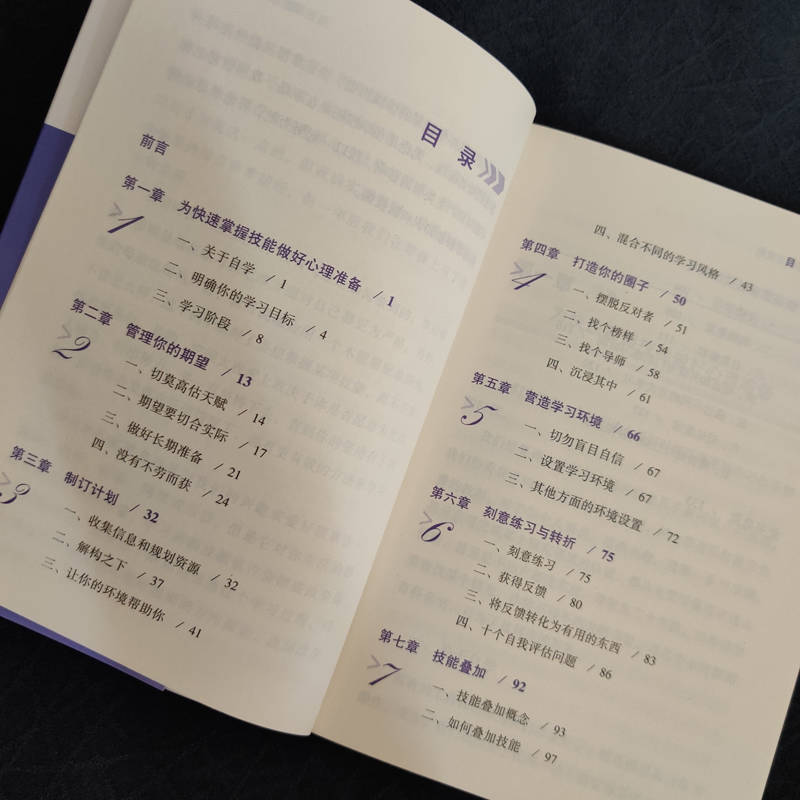 目 录
前言
第一章 为快速掌握技能做好心理准备 / 1
1
一、关于自学 / 1
二、明确你的学习目标 / 4
三、学习阶段 / 8
第二章 管理你的期望 / 13
2
一、切莫高估天赋 / 14
二、期望要切合实际 / 17
三、做好长期准备 / 21
四、没有不劳而获 / 24
第三章 制订计划 / 32
3
一、收集信息和规划资源 / 32
二、解构之下 / 37
三、让你的环境帮助你 / 41
目
四、混合不同的学习风格 / 43
第四章 打造你的圈子 / 50
4
一、摆脱反对者 / 51
二、找个榜样 / 54
三、找个导师 / 58
四、沉浸其中 / 61
第五章 营造学习环境 / 66
5
一、切勿盲目自信 / 67
二、设置学习环境 / 67
三、其他方面的环境设置 / 72
第六章 刻意练习与转折 / 75
6
一、刻意练习 / 75
二、获得反馈 / 80
三、将反馈转化为有用的东西 / 83
四、十个自我评估问题 / 86
第七章 技能叠加 / 92
7
一、技能叠加概念 / 93
二、如何叠加技能 / 97